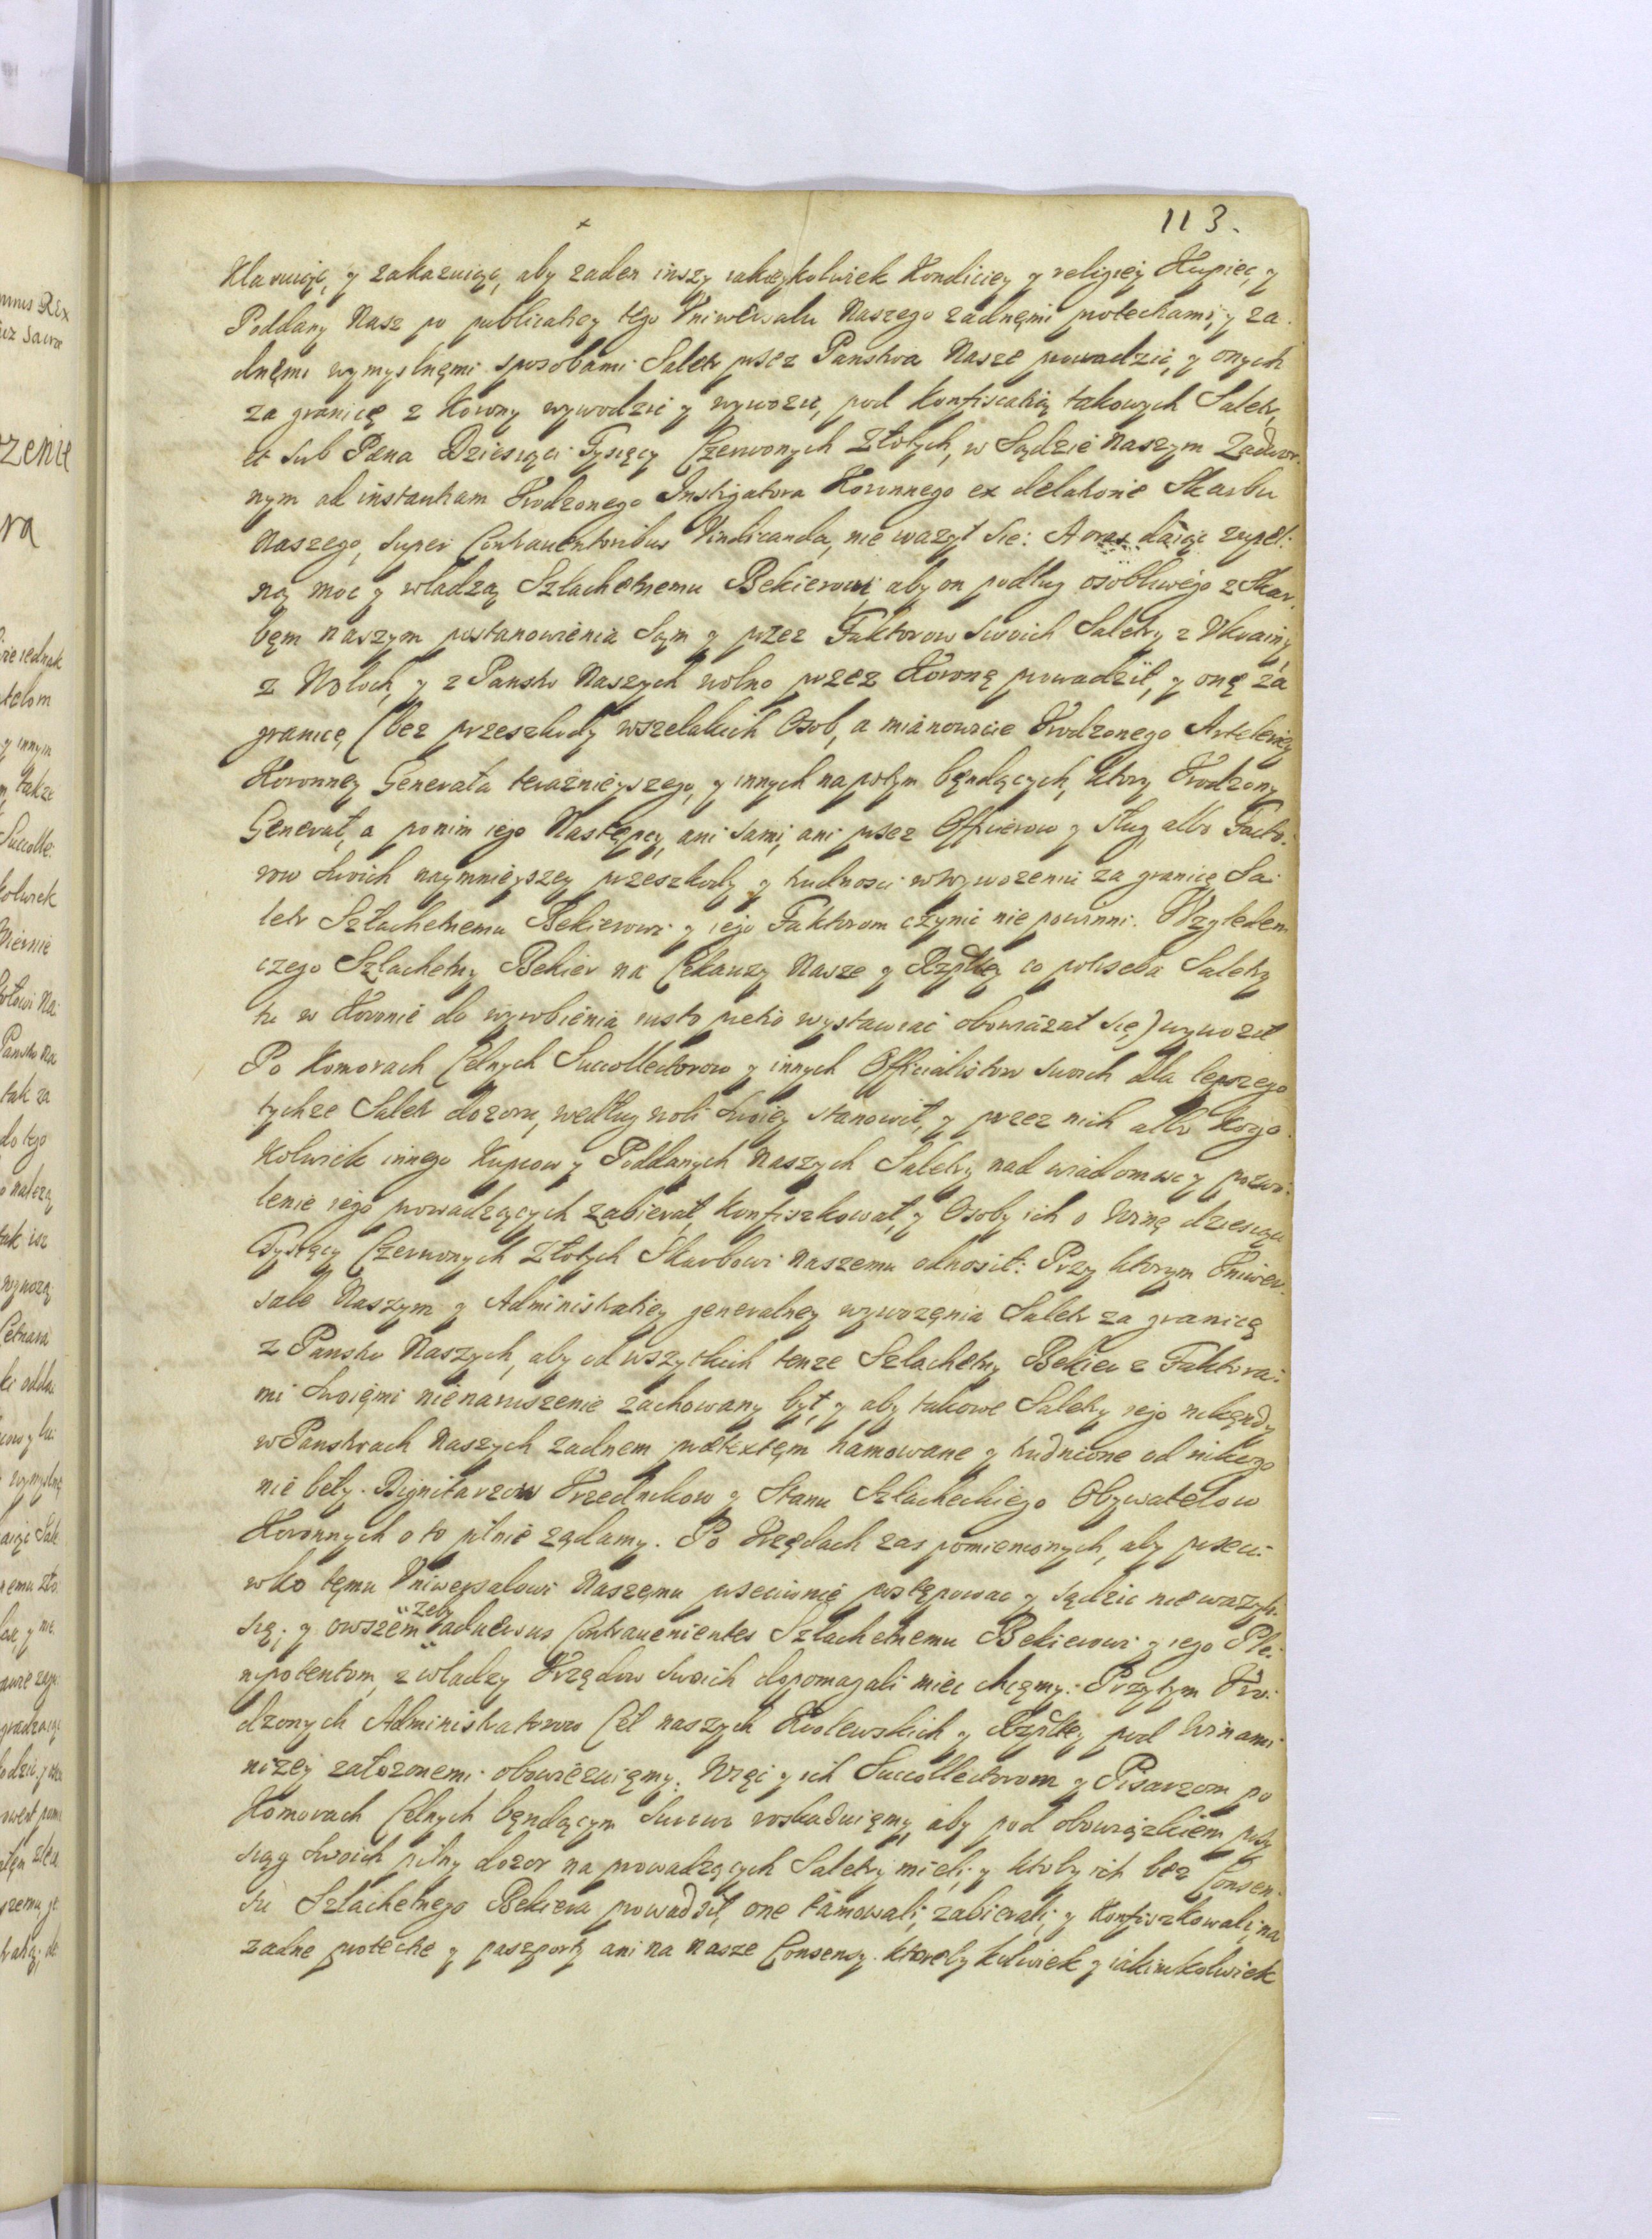 113.
klaruiąc, y zakazuiąc, aby zaden inszy iakieykolwiek Kondiciey y religiey Kupiec, y
Poddany Nasz po publicatiey tego Vniwersału Naszego zadnęmi protechami, y za-
dnęmi wymyslnęmi sposobami Saletr przez Panstwa Nasze prowadzić, y onych
za granicę z Korony wywodzić y wywozić, pod konfiscatią takowych Saletr,
et sub Pæna Dziesiąci Tysięcy Czerwonych Złotych, w Sądzie Naszym Zadwor-
nym ad instantiam Urodzonego Instigatora Koronnego ex delatione Skarbu
Naszego, super Contrauentoribus Vindicanda, nie wazył się: A oraz daiąc zupeł:
ną moc y władzą Szlachetnemu Bekierowi, aby on podług osobliwego z Skar-
bęm naszym postanowienia Sąm y przez Faktorow swoich Saletry z Vkrainy,
z Wołoch, y z Panstw Naszych wolno przez Koronę prowadził, y onę za
granicę (bez przeszkody wszelakich Osob, a mianowicie Urodzonego Artyleriey
Koronney Generała teraznieyszego, y innych napotym będących, ktory Urodzony
Generał, a ponim iego Następcy, ani sami, ani przez Officierow y sług, albo Facto-
row swoich naymnieyszey przeszkody y trudnosci w wywozeniu za granicę Sa-
letr Szlachetnemu Bekierowi y iego Faktorom czynić nie powinni. Względem
czego Szlachetny Bekier na Cekauzy Nasze y Rzptey co potrzeba Saletry
tu w Koronie do wyrobienia iusto pretio wystawiać obowiązał się) wywoził
Po Komorach Celnych Succollectorow y innych Officialistow swoich dla lepszego
tychze Saletr dozoru, według woli swoiey stanowił, y przez nich albo Kogo-
kolwiek innego Kupcow y Poddanych Naszych Saletry nad wiadomosc y pozwo-
lenie iego prowadzących zabierał, konfiszkował, y Osoby ich o winę dziesiąci
Tysięcy Czerwonych Złotych Skarbowi Naszemu odnosił: Przy ktorym Vniwer-
sale Naszym y Administratiey generalney wywozęnia Saletr za granicę
z Panstw Naszych, aby od wszytkich tenze Szlachetny Bekier z Faktora-
mi swoięmi nienaruszenie zachowany był, y aby takowe Saletry iego nikędy
w Panstwach Naszych zadnem pretextęm hamowane y trudnione od nikogo
nie beły. Dignitarzow Vrzednikow y Stanu Szlacheckiego Obywatelow
Koronnych o to pilnie ządamy. Po Vrzędach zas pomienionych, aby przeci-
wko tęmu Vniwersalowi Naszęmu przeciwnie postępowac y sądzic nie wazyli
się; y owszem żeby aduersus Contrauenientes Szlachetnemu Bekierowi y iego Ple-
nipotentom, z władzy Vrzędow swoich dopomagali miec chcęmy: Przytym Vro-
dzonych Administratorow Ceł naszych Krolewskich y Rzptey pod winami
nizey załozonemi obowięzuięmy. Więc y ich Succollectorom y Pisarzom po
Komorach Celnych będącym surowo roskazuięmy, aby pod obowiązkiem przy-
siąg swoich pilny dozor na prowadzących Saletry mieli, y ktoby ich bez Consen-
su Szlachetnego Bekiera prowadził, one tamowali, zabierali, y Konfiszkowali, na
zadne protechce y paszporty ani na nasze Consensy. ktorebykolwiek y iakiekolwiek